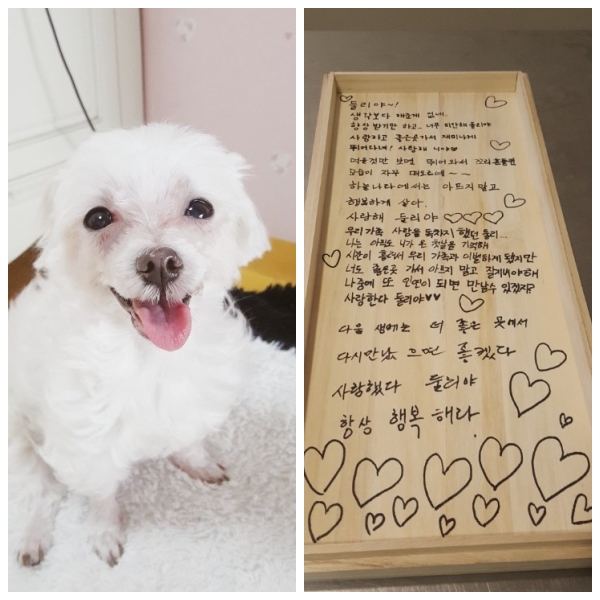 둘리야~!
생각보다 해준게 없네..
항상 받기만 하고.. 너무 미안해 둘리야
사랑하고 좋은곳가서 재미나게
뛰어다녀! 사랑해 니야♥
먹을것만 보면 뛰어와서 꼬리 흔들던
모습이 자꾸 떠오르네~~
하늘나라에서는 아프지말고
행복하게 살아.
사랑해 둘리야♡♡♡
우리가족 사랑을 독차지 했던 둘리...
나는 아직도 니가 온 첫날을 기억해
시간이 흘러서 우리 가족과 이별하게 됐지만
너도 좋은곳 가서 아프지 말고 잘지내야해
나중에 또 인연이 되면 만날수 있겠지?
사랑한다 둘리야♥♥
다음 생에는 더 좋은 곳에서
다시만났으면 좋겠다
사랑했다 둘리야
항상 행복해라.